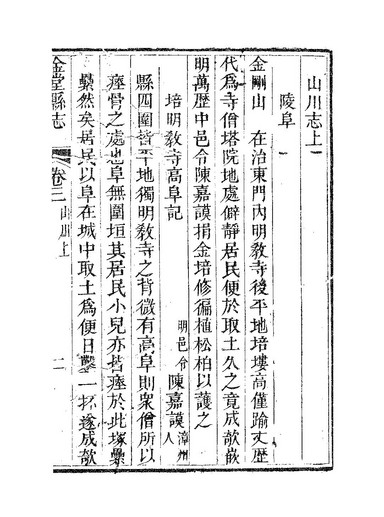 山川志上
陵阜
金剛山 在治東門內明教寺後平地培塿高僅踰丈歷
代爲寺僧塔院地處僻靜居民便於取土久之竟成欹嵌
明萬歷中邑令陳嘉謨捐金培修徧植松柏以護之
培明教寺高阜記
明邑令陳嘉謨漳州人
縣四圍皆平地獨明教寺之背微有高阜則衆僧所以
瘞骨之處也阜無圍垣其居民小兒亦若瘞於此塚纍
纍然矣居民以阜在城中取土爲便日鑿一抔遂成欹
金堂縣志
卷三 山川上